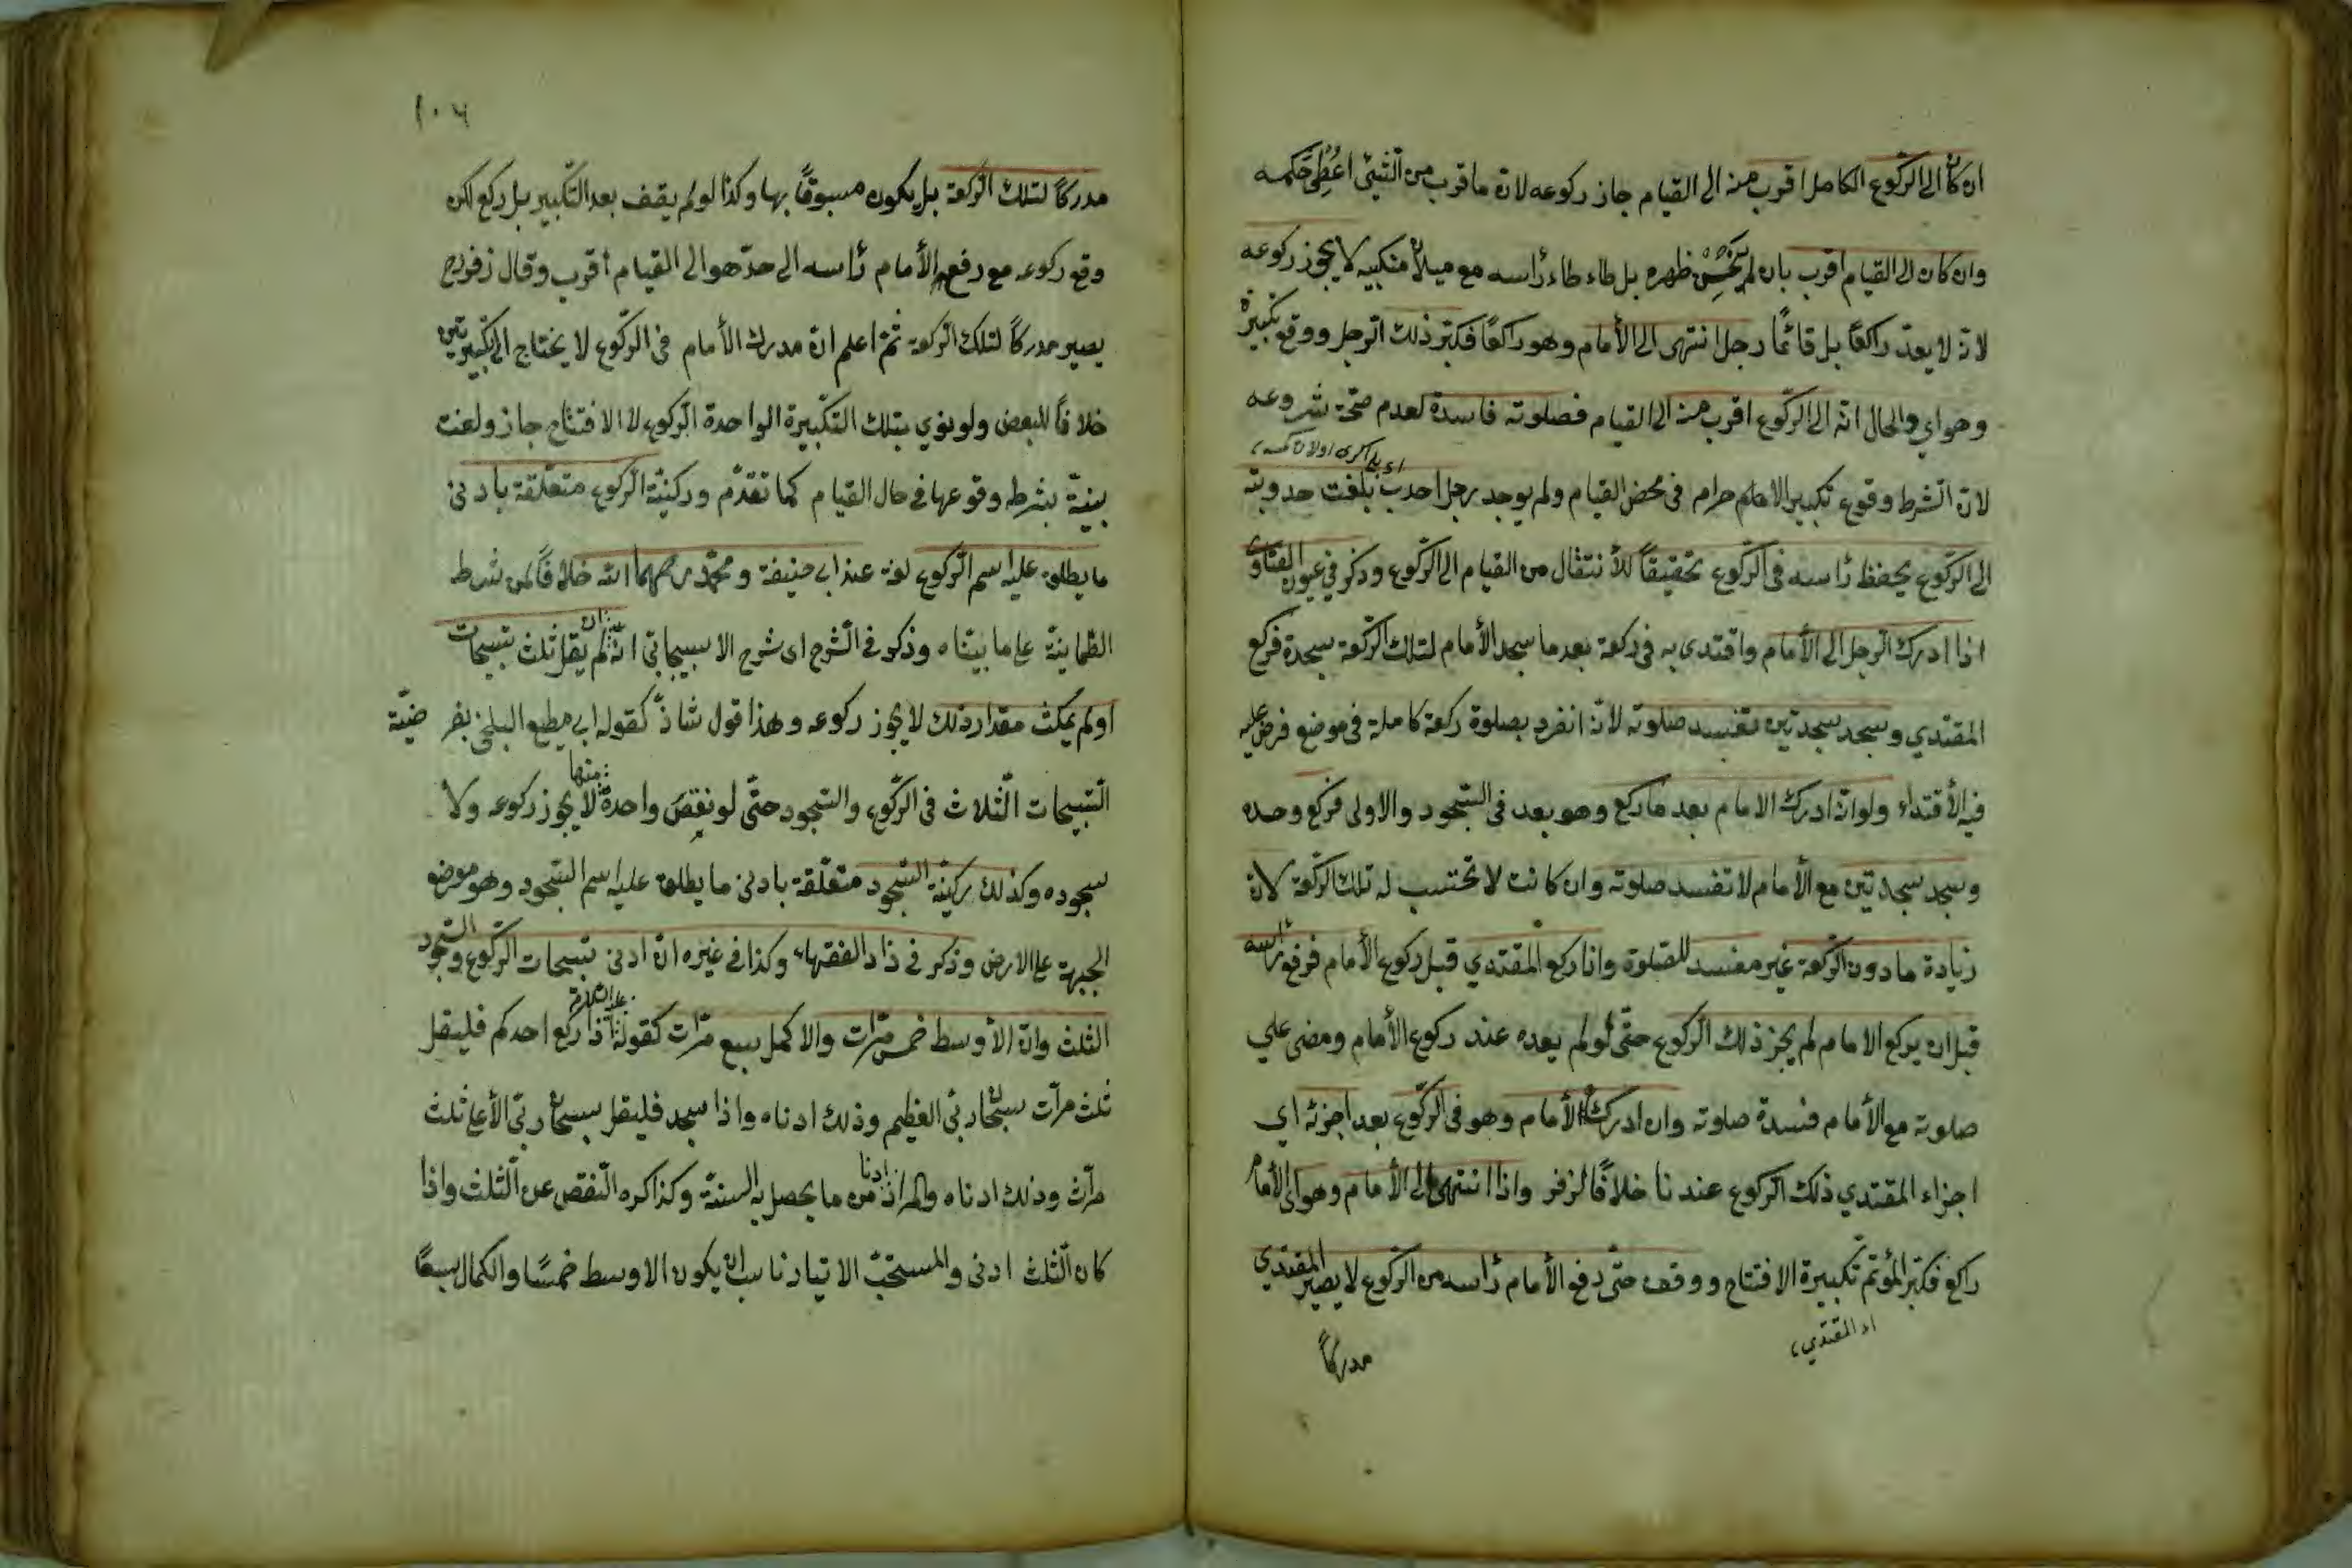 ان كان الى الركوع الكامل اقرب منه الى القيام جاز ركوعه لان ما قرب من الشئ اعطى حكمه
وان كان الى القيام اقرب بان لم ينحن ظهره بل طاء طاء رأسه مع ميلان منكبيه لا يجوز ركوعه
لانه لا يعد راكعًا بل قائمًا رجل انتهى الى الأمام وهو راكعًا فكبر ذلك الرجل ووقع تكبيرة
وهو اي والحال انه الى الركوع اقرب منه الى القيام فصلوته فاسدة لعدم صحة شروعه
لان الشرط وقوع تكبير الاحرام في محض القيام ولم يوجد رجل احدب بلغت حدوبته
الى الركوع يخفظ رأسه في الركوع تحقيقًا للأنتقال من القيام الى الركوع وذكر في عيون الفتاوى
اذا ادرك الرجل الى الأمام واقتدى به في ركعة بعد ما سجد الأمام لتلك الركعة سجدة فركع
المقتدي وسجد سجدتين تفسد صلوته لانه انفرد بصلوة ركعة كاملة في موضع فرض عليه
فيه الأقتداء ولو انه ادرك الامام بعد ما ركع وهو بعد في السجود والاولى فركع وحده
وسجد سجدتين مع الأمام لا تفسد صلوته وان كانت لا تحتسب له تلك الركعة لان
زيادة ما دون الركعة غير مفسد للصلوة واذا ركع المقتدي قبل ركوع الأمام فرفع رأسه
قبل ان يركع الامام لم يجز ذلك الركوع حتى لو لم يعده عند ركوع الأمام ومضى علي
صلوته مع الأمام فسدة صلوته وان ادركه الأمام وهو في الركوع بعد اجزئه اي
اجزاء المقتدي ذلك الركوع عندنا خلافًا لزفر واذا انتهى الى الأمام وهو اى الأمام
راكع فكبر المؤتم تكبيرة الافتتاح ووقف حتى رفع الأمام رأسه من الركوع لا يصير المقتدي
اى المقتدي
مدركًا
١٠٦
مدركًا لتلك الركعة بل يكون مسبوقًا بها وكذا لو لم يقف بعد التكبير بل ركع لكن
وقع ركوعه مع رفع الأمام رأسه الى حد هو الى القيام أقرب وقال زفر رح
يصير مدركًا لتلك الركعة ثم اعلم ان مدرك الأمام في الركوع لا يحتاج الى تكبيرتين
خلافًا للبعض ولو نوي بتلك التكبيرة الواحدة الركوع لا الافتتاح جاز ولغت
بنيته بشرط وقوعها في حال القيام كما تقدم وركنية الركوع متعلقة بادنى
ما يطلق عليه اسم الركوع لغة عند ابي حنيفة ومحمد رحمهما الله خلافًا لمن شرط
الطمانينة على ما بيناه وذكر في الشرح اى شرح الاسبيجابي انه ان لم يقل ثلث تسبيحات
او لم يمكث مقدار ذلك لا يجوز ركوعه وهذا قول شاذ كقول ابي مطيع البلخي بفرضية
التسبيحات الثلاث في الركوع والسجود حتى لو نقص واحدة منها لا يجوز ركوعه ولا
سجوده وكذلك ركنية السجود متعلقة بادنى ما يطلق عليه اسم السجود وهو موضع
الجبهة على الارض وذكر في زاد الفقهاء وكذا في غيره ان ادنى تسبيحات الركوع والسجود
الثلث وان الأوسط خمس مرات والاكمل سبع مرات كقوله عليه السلام اذا ركع احدكم فليقل
ثلث مرآت سبحان ربي العظيم وذلك ادناه واذا سجد فليقل سبحان ربي الأعلى ثلث
مرآت وذلك ادناه والمراد ادنا من ما يحصل به السنة وكذا كره النقص عن الثلث واذا
كان الثلث ادنى والمستحب الايتار ناسب ان يكون الاوسط خمسًا والكمال سبعًا